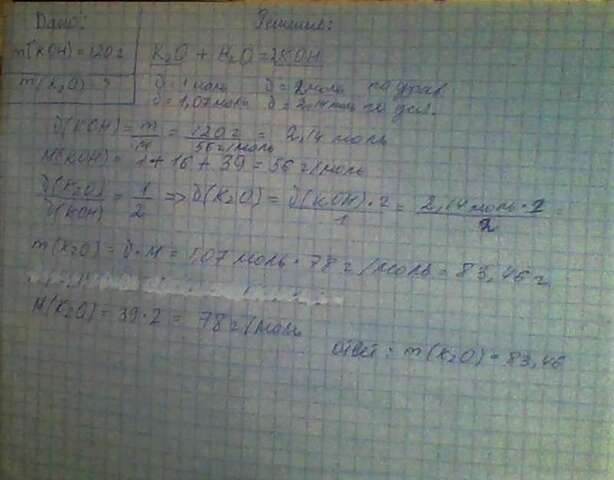 Дано: Решение:
m(KOH) = 120 г K₂O + H₂O = 2KOH
m(K₂O) - ? ϑ = 1 моль ϑ = 2 моль по урав.
ϑ = 1,07 моль ϑ = 2,14 моль по
ϑ(KOH) = m/M = 120 г/56 г/моль = 2,14 моль
M(KOH) = 1 + 16 + 39 = 56 г/моль
ϑ(K₂O)/ϑ(KOH) = 1/2 => ϑ(K₂O) = ϑ(KOH)·2/1 = 2,14 моль·1/2 =
m(K₂O) = ϑ·M = 1,07 моль · 78 г/моль = 83,46 г
M(K₂O) = 39·2 = 78 г/моль
ответ: m(K₂O) = 83,46